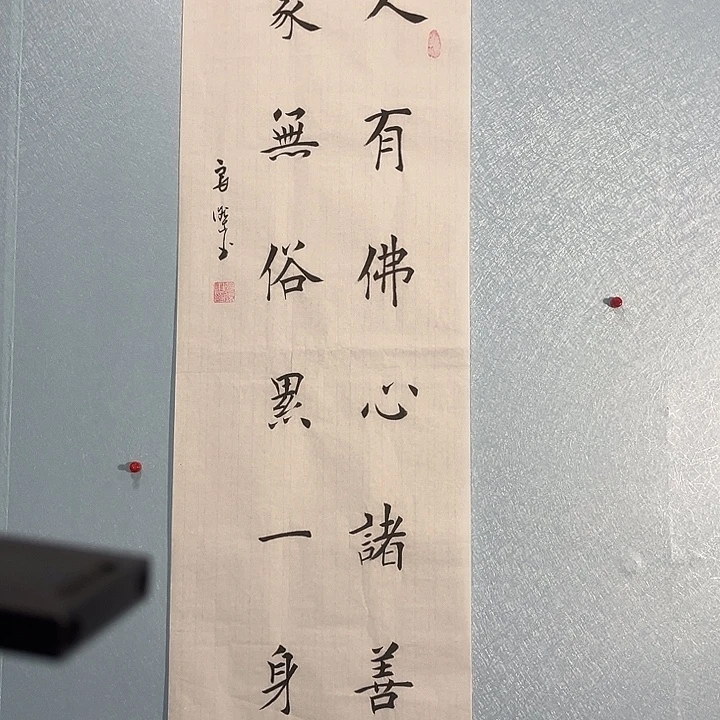 人有佛心諸善
家無俗累一身